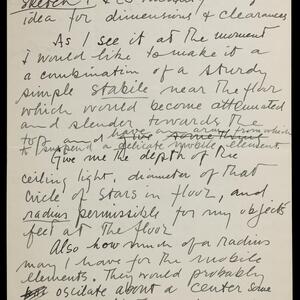 sketch
idea for dimensions & clearances
As I see it at the moment
I would like to make it a
a combination of a sturdy
simple stabile near the floor
which would become attenuated
and slender towards the
top, and have an arm from which
to suspend a delicate mobile element
Give me the depth of the
ceiling light, diameter of that
circle of stars in floor, and
radius permissible for my objects
feet at the floor
Also how much of a radius
may I have for the mobile
elements. They would probably
oscilate about a center some